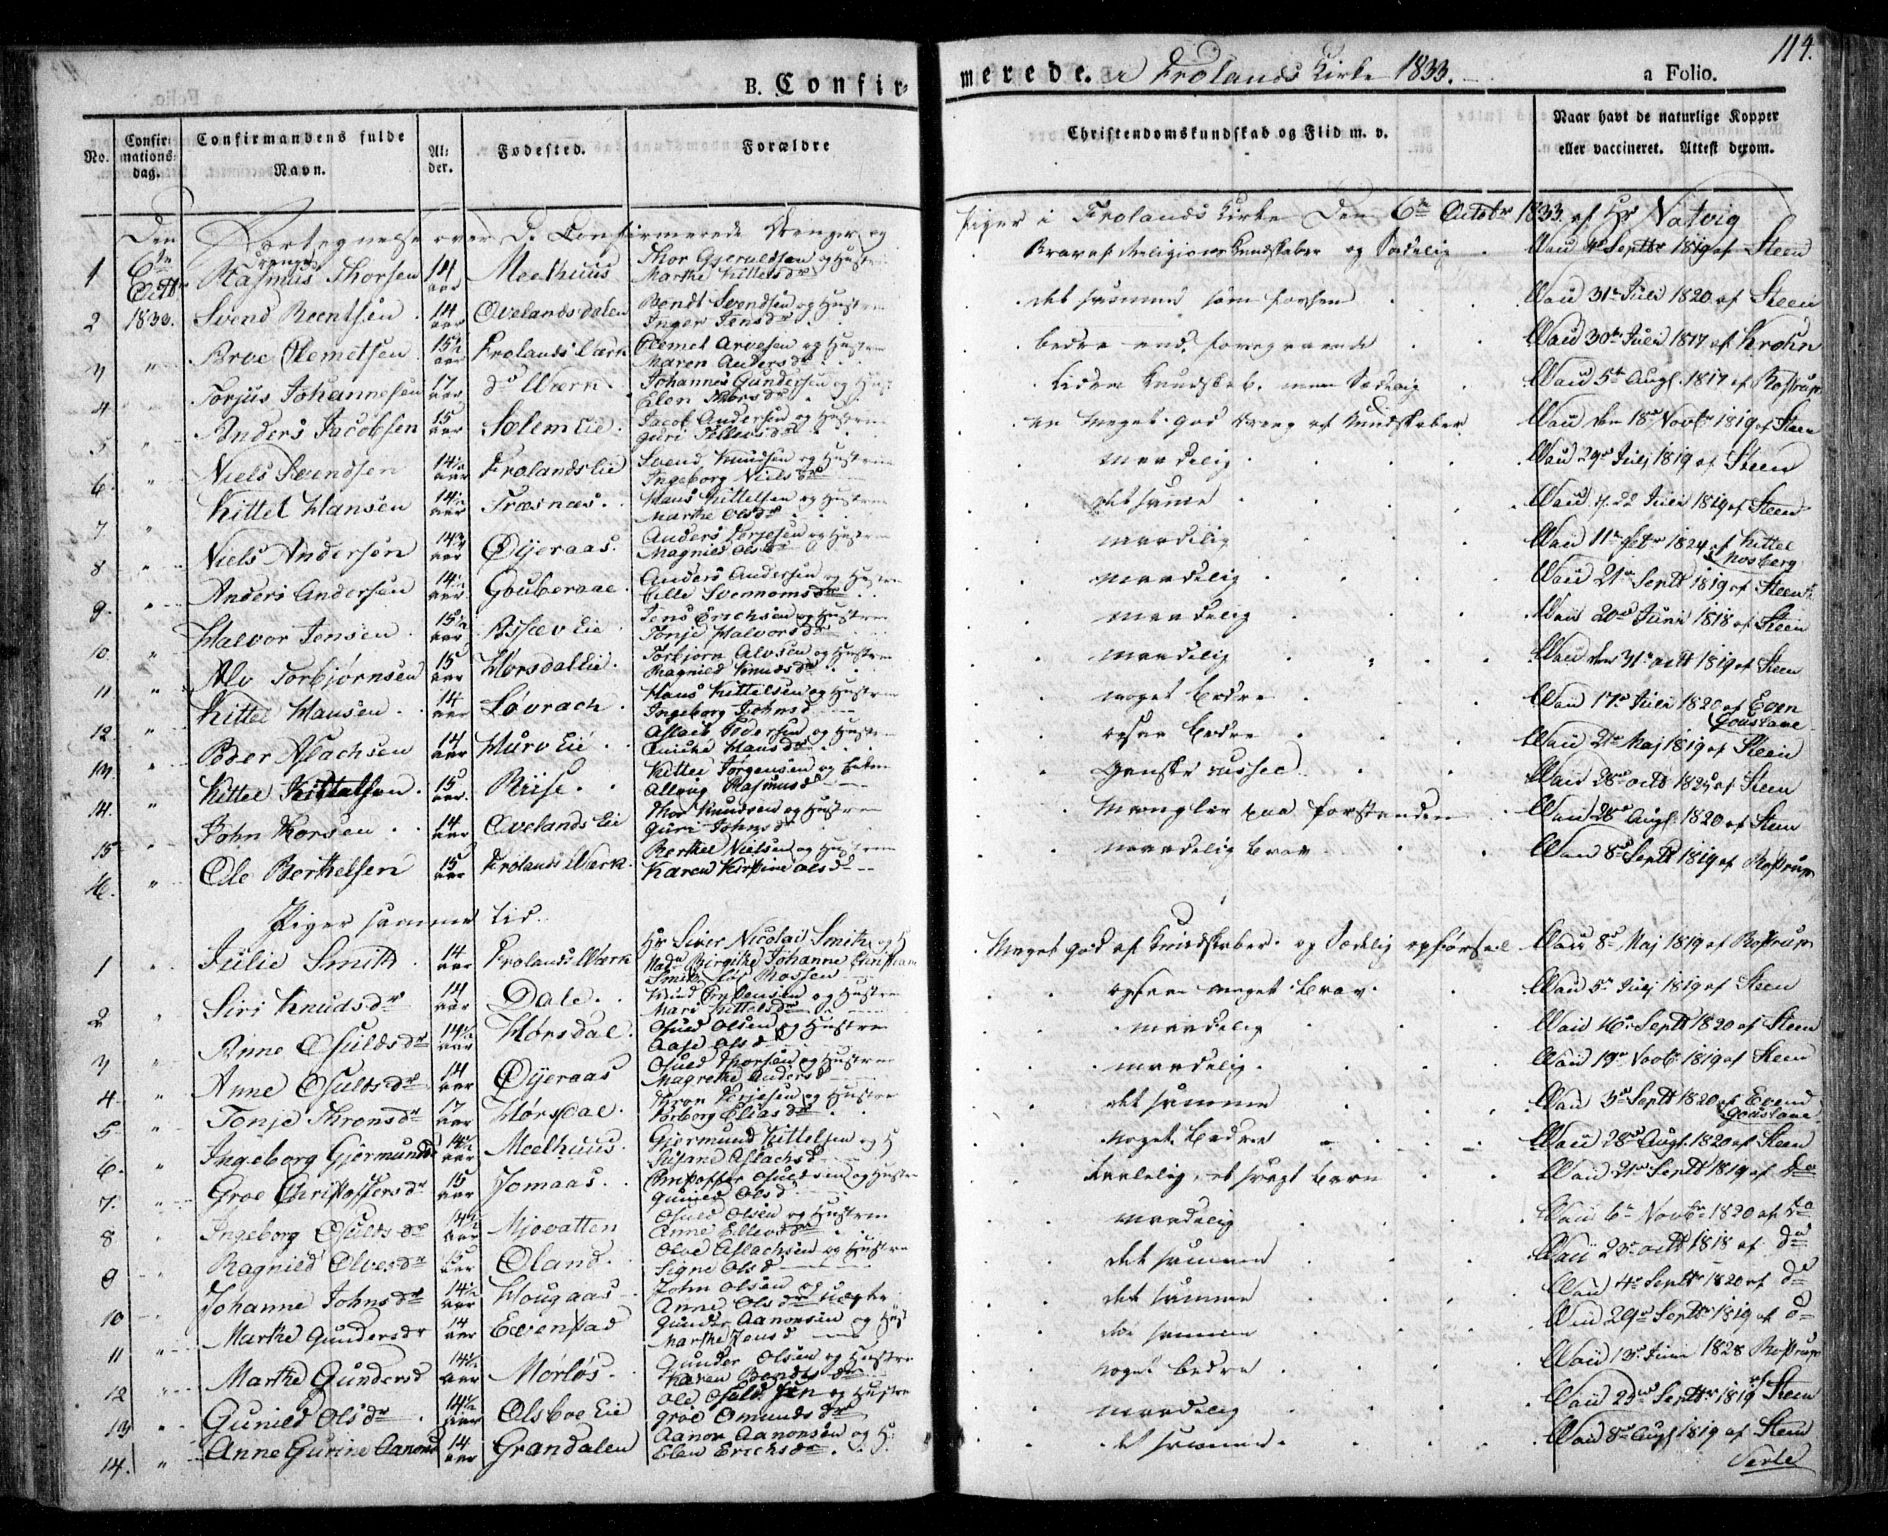 114.
B. Confirmerede. i Frolands Kirke 1833.
a Folio.
No. | Confirmationsdag. | Confirmandens fulde Navn. | Alder. | Fødested. | Forældre | Christendomskundskab og Flid m. v. | Naar havt de naturlige Kopper eller vaccineret. Attest derom.
Den 6te Octb 1833.
Fortegnelse over De Confirmerede Drenge og Piger i Frolands Kirke Den 6te Octobr 1833 af Hr Natvig
Drenge
1 Rasmus Thorsen 14 aar Meelhuus Thor Gjeruldsen og Hustru Marthe Kittelsdr Brav af Religions Kundskaber og Sædelig Steen
2 Svend Beentsen 14 aar Ovelandsdalen Bendt Svendsen og Hustru Inger Jensdr det samme som forhen Vaci 31te Juli 1820 af Steen
3 " Clemetsen 15½ aar Frolands Værk Clemet Arvesen og Hustru Maren Andersdr bedre end foregaaende Vaci 30te Juli 1817 af Krohn
4 Torjus Johannesen 17 aar do Værn Johannes Gundersen og Hust Elen Thorsdr liden Kundskab. men Sædelig Vaci 5te Augst 1817 af Rostrup
5 " Anders Jacobsen 15 aar Solem Eie Jacob Andersen og Hustru Guri Tellevsdr en meget god Dreng af Kundskaber Vaci den 18de Novbr 1819 af Steen
6. " Niels Svendsen 14½ aar Frolands Eie Svend Knudsen og Hustru Ingeborg Nielsdr maadelig Vaci 29de Julj 1819 af Steen
7. " Kittel Hansen 14½ aar Træsnæs. Hans Kittelsen og Hustru Marthe Olsdr det samme Vaci d. 22 Juli 1819 af Steen
8 " Niels Andersen 14¾ aar Øyeraas. Anders Terjesen og Hustru Magnild Olsdr maadelig 1824 af Kittel Mosberg
9. " Anders Andersen 14½ aar Anders Andersen og Hustru maadelig Vaci 21de Septb 1819 af Steen
10. " Halvor Jensen 15½ aar Assæv Eie Jens Erichsen og Hustru Tonje Halvorsdr maadelig Vaci 20de Juni 1818 af Steen
11. " Alv Torbjørnsen 15 aar Hørsdal Eie. Torbjørn Alvsen og Hustru Ragnild Knudsdr maadelig Vaci den 31te octb 1819 af Steen
12. " Kittel Hansen 14 aar Løvrach. Hans Kittelsen og Hustru Ingeborg Johnsd noget bedre Vaci 17de Juli 1820 af Even
13. " Peder Aslachsen 14 aar Hurv Eie Aslach Pedersen og Hustru Hansdr ogsaa bedre Vaci 21de Maj 1819 af Steen
14. " Kittel Kittelsen 15 aar. Riise. Kittel Jørgensen og Rasmusd Ganske ussel Vaci 28de octb 1825 af Steen
15 " John Thorsen 14 aar Ovelands Eie Thor Knudsen og Hustru Guri Johnsdr Mangler paa forstanden Vaci 28de Augst 1820 af Steen
16. " Ole Berthelsen 15 aar Frolands Værk Berthel Nielsen og Hustru Karen Kirstine Olsd maadelig brav Vaci 8de Septb 1819 af Rostrup
Piger samme tid.
1 " Julie Smith 14 aar Frolands Værk Hr Siver Nicolai Smith og H Mad Birgithe Johanne Smith født Rossen Meget god af Kundskaber og Sædelig opførsel Vaci 8de Maj 1819 af Rostrup
2 " Siri Knudsdr 14 aar Dale. og Hustru Mari Kittelsdr ogsaa meget brav Vaci 5te Julj 1819 af Steen
3 " Anne Osuldsdr 14½ aar Hørsdal Osuld Olsen og Hustru Aase Olsd maadelig Vaci 16de Septb 1820 af Steen
4. " Anne Osulsdr 14 aar Øyeraas Osuld Thorsen og Hustru Magrethe Andersd maadelig. Vaci 19de Novb 1819 af Steen
5 " Tonje Thronsdr 17 aar Hørsdal. Thron Terjesen og Hustru Torborg Eliasdr det samme Vaci 3de Septb 1820 af Evend
6. " Ingeborg Gjermundsd 14½ aar Meelhuus. Gjermund Kittelsen og H Susane Aslachsd noget bedre Vaci 28de Augst. 1820 af Steen
7. " Groe Christophersdr 15 aar Jomaas. Christopher Osuldsen og Hustru Gunild Olsd Vaci 21de Septb 1819 af do
8 " Ingeborg Osulsdr 14½ aar Mjovatten Osuld Olsen og Hustru Anne Ellevsdr maadelig Vaci 6te Novbr 1820 af do
9 " Ragnild Olvesdr 15 aar Øland. Olve Aslachsen og Hustru Signe Olsd det samme Vaci 20de octb 1818 af do
10 " Johanne Johnsdr 14½ aar Hougaas John Olsen og Anne Olsdr det samme Vaci 4de Septbr 1820 af do
11 " Marthe Gundersdr 14 aar Evenstad Gunder Aanonsen og Hus Marthe Jensd det samme Vaci 29de Septbr 1819 af do
12 " Marthe Gundersd 14½ aar Mørløs. Gunder Olsen og Hustru Karen Bendtsdr noget bedre Vaci 13de Juni 1828 Rostrup
13 " Gunild Olsdr 14½ aar Olsboe Eie Ole Osuldsen og Hustru Groe Omundsdr maadelig Vaci 23de Septbr 1819 af Steen
14. " Anne Gurine Aanonsd 14 aar Grændalen Aanon Aanonsen og H: Elen Erichsdr det samme. Vaci 8de Augst 1819 af Steen
Verte